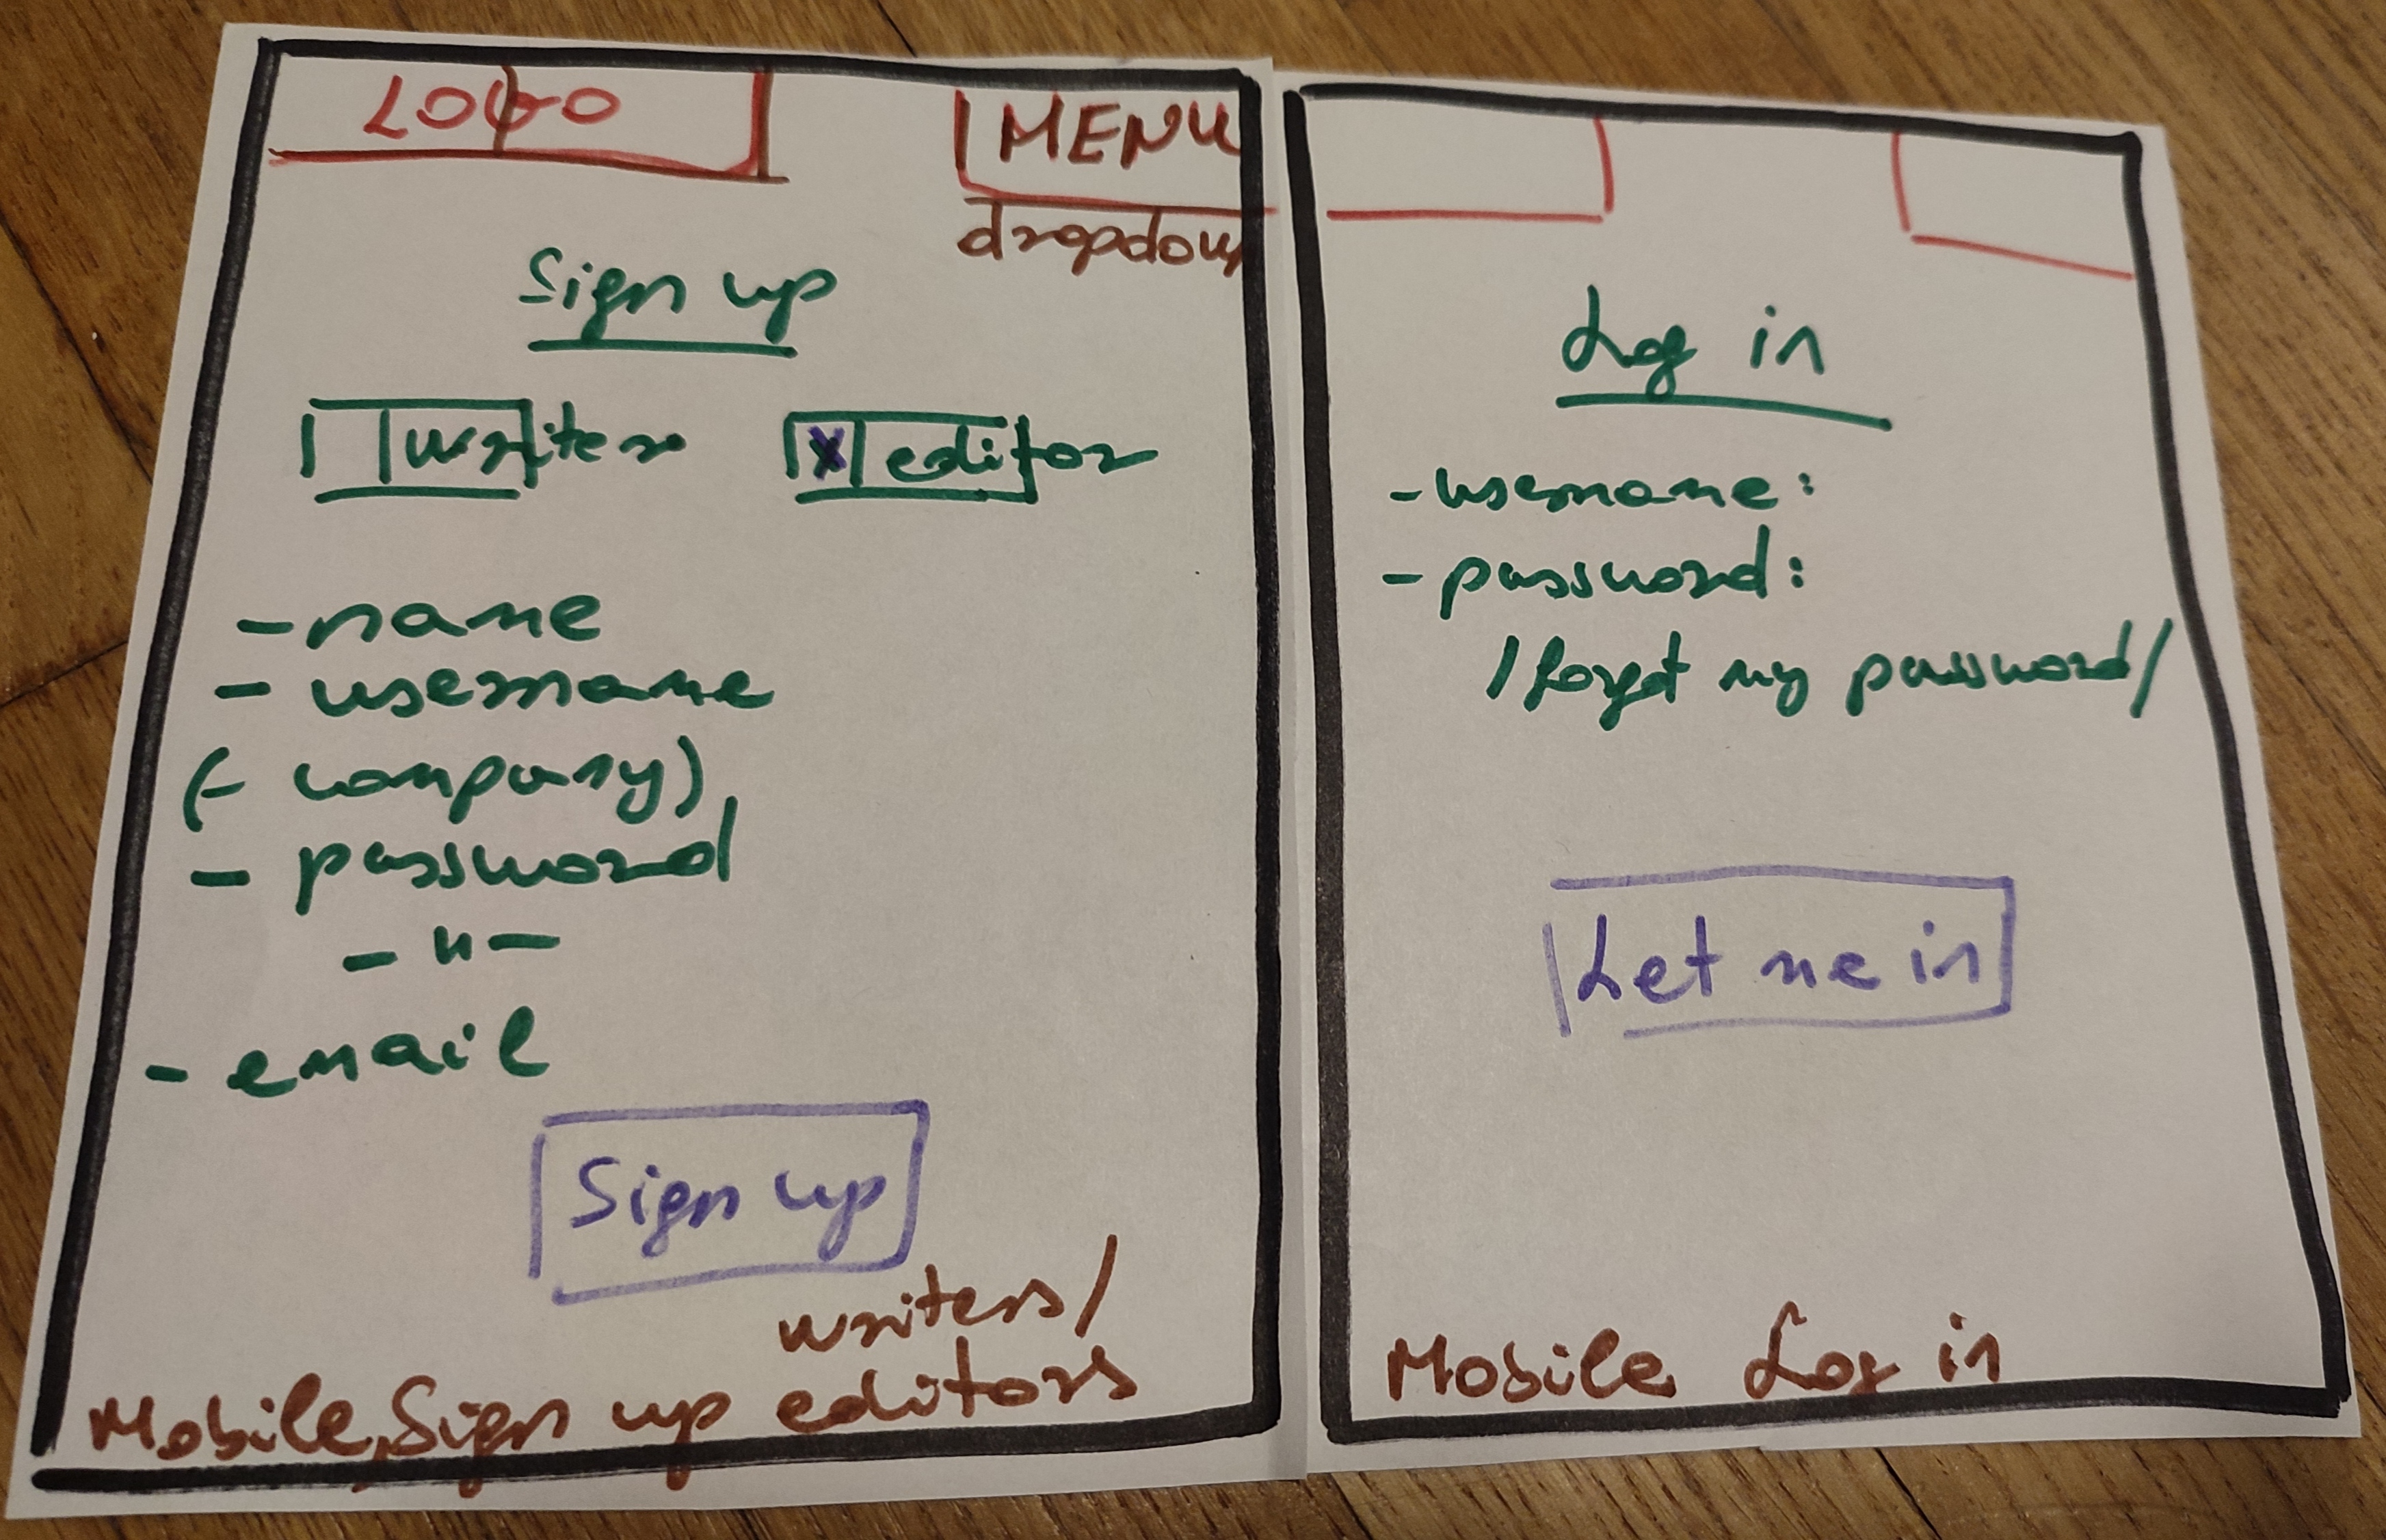 LOGO
MENU
dropdown
Sign up
writer
X editor
- name
- username
(- company)
- password
- " -
- email
Sign up
writers/
Mobile, Sign up editors
Log in
- username:
- password:
/forgot my password/
Let me in
Mobile Log in